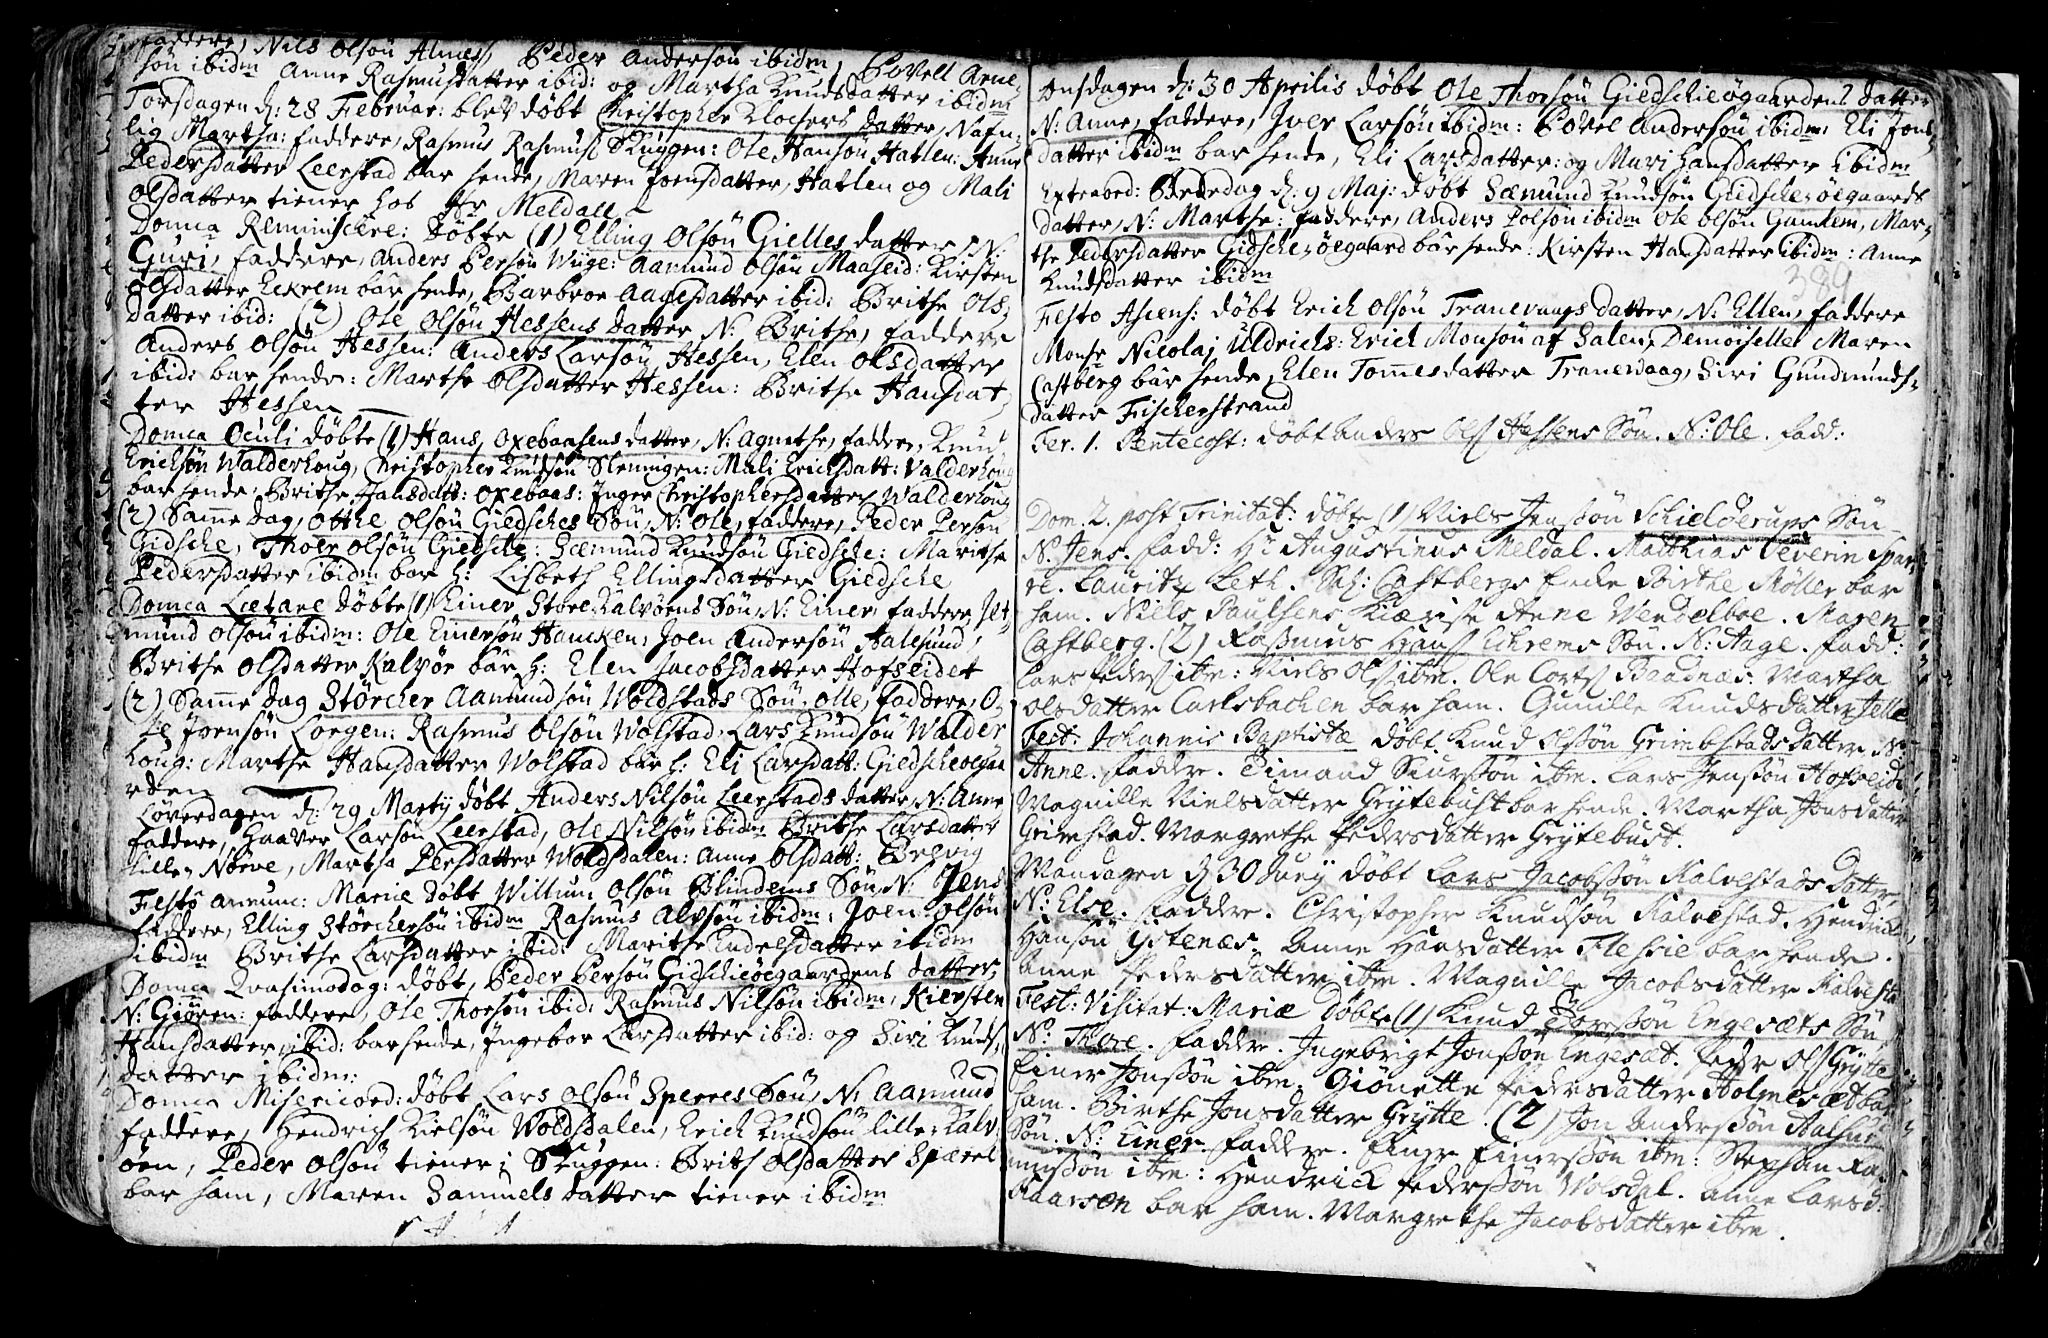 faddere, Nils Olsøn Alnæs, Peder Andersøn ibidm, Povell Arne-
søn ibidm Anne Rasmusdatter ibid: og Martha Knudsdatter ibidm
Torsdagen d: 28 Februar: blev døbt Christopher Klochers datter, Nafn-
lig Martha: faddere, Rasmus Rasmuss Skuggen: Ole Hansøn Hatlen: Anne
Pedersdatter Leerstad bar hende, Maren Joensdatter, Hatlen og Mali
Olsdatter tiener hos Hr Meldall
Domca Reminiscere: Døbte (1) Elling Olsøn Gielles datter, N:
Guri, faddere, Anders Persøn Wiige: Aamund Olsøn Maaseid: Kirsten
Olsdatter Eekrem bar hende, Barbroe Aagesdatter ibid: Brithe Ols-
datter ibid: (2) Ole Olsøn Hessens datter N: Brithe, faddere
Anders Olsøn Hessen: Anders Larsøn Hessen, Elen Olsdatter
ibid: bar hende: Marthe Olsdatter Hessen: Brithe Hansdat-
ter Hessen
Domca Oculi døbte (1) Hans Oxebaasens datter, N: Agnethe, faddere, Knud
Erichsøn Walderhoug, Christopher Knudsøn Slemingen: Mali Erichsdatt: Valderhoug
bar hende: Brithe Hansdatt: Oxebaas: Inger Christophersdatter Walderhoug
(2) Samme dag, Otthe Olsøn Giedsches Søn, N: Ole, faddere, Peder Persen
Gidsche, Thoer Olsøn Giedsche: Sæmund Knudsøn Giedsche: Marithe
Pedersdatter ibidm bar h: Lisbeth Ellingsdatter Giedsche
Domca Lætare døbte (1) Einer Store Kalvøens Søn, N: Einer, faddere, Jet-
mund Olsøn ibidm: Ole Einersøn Hancken, Joen Andersøn Aalesund,
Brithe Olsdatter Kalvøe bar h: Elen Jacobsdatter Hofseidet
(2) Samme dag Størcher Aamundsøn Woldstads Søn, Olle, faddere, O-
le Joensøn Loegen: Rasmus Olsøn Wolstad, Lars Knudsøn Walder
houg: Marthe Hansdatter Wolstad bar h: Eli Larsdatt: Giedscheøegaa-
rden
Løverdagen d: 29 Martij døbt Anders Nilsøn Leerstads datter, N: Anne
faddere, Haaver Larsøn Leerstad, Ole Nilsøn ibidm Brithe Larsdatter
Lille-Nørve, Martha Persdatter Woldsdalen: Anne Olsdatt: Brevig
Festo Anunc: Mariæ døbt Willum Olsøn Blindems Søn, N: Jens
faddere, Elling Størchersøn ibidm Rasmus Alvsøn ibidm, Joen Olsøn
ibidm Brithe Larsdatter ibid: Marithe Endresdatter ibidm
Domca Qvasimodog: døbt, Peder Persøn Gidscheøegaardens datter,
N: Giøren: faddere, Ole Thorsøn ibid: Rasmus Nilsøn ibidm, Kiersten
Hansdatter, ibid: bar hende, Ingebor Larsdatter ibid: og Siri Knuds-
datter ibidm:
Domca Misericord: døbt Lars Olsøn Sperres Søn, N: Aamund
faddere, Hendrich Kielsøn Woldsdalen, Erich Knudsøn lille-Kalv-
øen, Peder Olsøn tiener i Skuggen: Brith Olsdatter Spærre
bar ham, Maren Samuelsdatter tiener ibidm
Onsdagen d: 30 Aprilis døbt Ole Thorsøn Giedscheøgaardens datter
N: Anne, faddere, Iver Larsøn ibidm: Povel Andersøn ibidm: Eli Jons-
datter ibidm bar hende, Eli Larsdatter: og Mari Hansdatter ibidm
Extraord: Brededag d: 9 Maj: døbt Sæmund Knudsøn Giedsche-øegaards
datter, N: Marthe: faddere, Anders Polsøn ibidm Ole Olsøn Gamlem, Mar-
the Pedersdatter Gidsche-øegaard bar hende: Kirsten Hansdatter ibidm: Anne
Knudsdatter ibidm
389
Festo Ascens: døbt Erich Olsøn Tranevaags datter, N: Ellen, faddere
Monsr Nicolaj Uldrichs: Erich Monsøn af Salen, Demoiselle Maren
Castberg bar hende, Elen Tommesdatter Tranevaag, Siri Gundmunds-
datter Fischerstrand
Fer. 1. Pentecost: døbt Anders Ols Hessens Søn. N: Ole. fadd:
Dom. 2. post Trinitat: døbte (1) Niels Jenssøn Schielderups Søn
N: Jens. Fadd: Hr Augustinus Meldal. Matthias Severin Spar-
re. Lauritz Leth. Sal: Castbergs Enke Birthe Møller bar
ham. Niels Paulsens Kiæriste Anne Wendelboe. Maren
Castberg. (2) Rasmus Hans Eckrems Søn. N: Aage. Fadd:
Lars Peders ibm: Niels Ols ibm. Ole Corts Baadnæs: Martha
Olsdatter Carlsbachen bar ham. Gunille Knudsdatter Jelle
Fest: Johannis Baptistæ døbt Knud Olssøn Grimbstads datter N:
Anne. Faddre. Simand Siurssøn ibm. Lars Jenssøn Hofseide
Magnille Nielsdatter Grytebust bar hende. Martha Jonsdatter
Grimstad. Margrethe Pedersdatter Grytebust.
Mandagen d 30 Juny døbt Lars Jacobssøn Kalvestads datter,
N: Else. Faddre. Christopher Knudsøn Kalvestad. Hendrich
Hansøn Ystenæs. Anne Hansdatter Flesrie bar hende.
Anne Pedersdatter ibm. Magnille Jacobsdatter Kalvesta
Fest: Visitat: Mariæ Døbte (1) Knud Torssøn Engesæts Søn
N: Thore. Faddre. Ingebrigt Jonssøn Engesæt. Peder Ols Grytte
Einer Jonssøn ibm. Giønette Pedersdatter Holmesæt bar
ham. Birthe Jonsdatter Grytte. (2) Jon Anderssøn Aalsun
Søn. N: Einer. Faddre. Einer Einerssøn ibm: Stephan Ras-
mussøn ibm: Hendrick Pederssøn Wolsdal. Anne Larsd:
Haarsøn bar ham. Margrethe Jacobsdatter ibm.